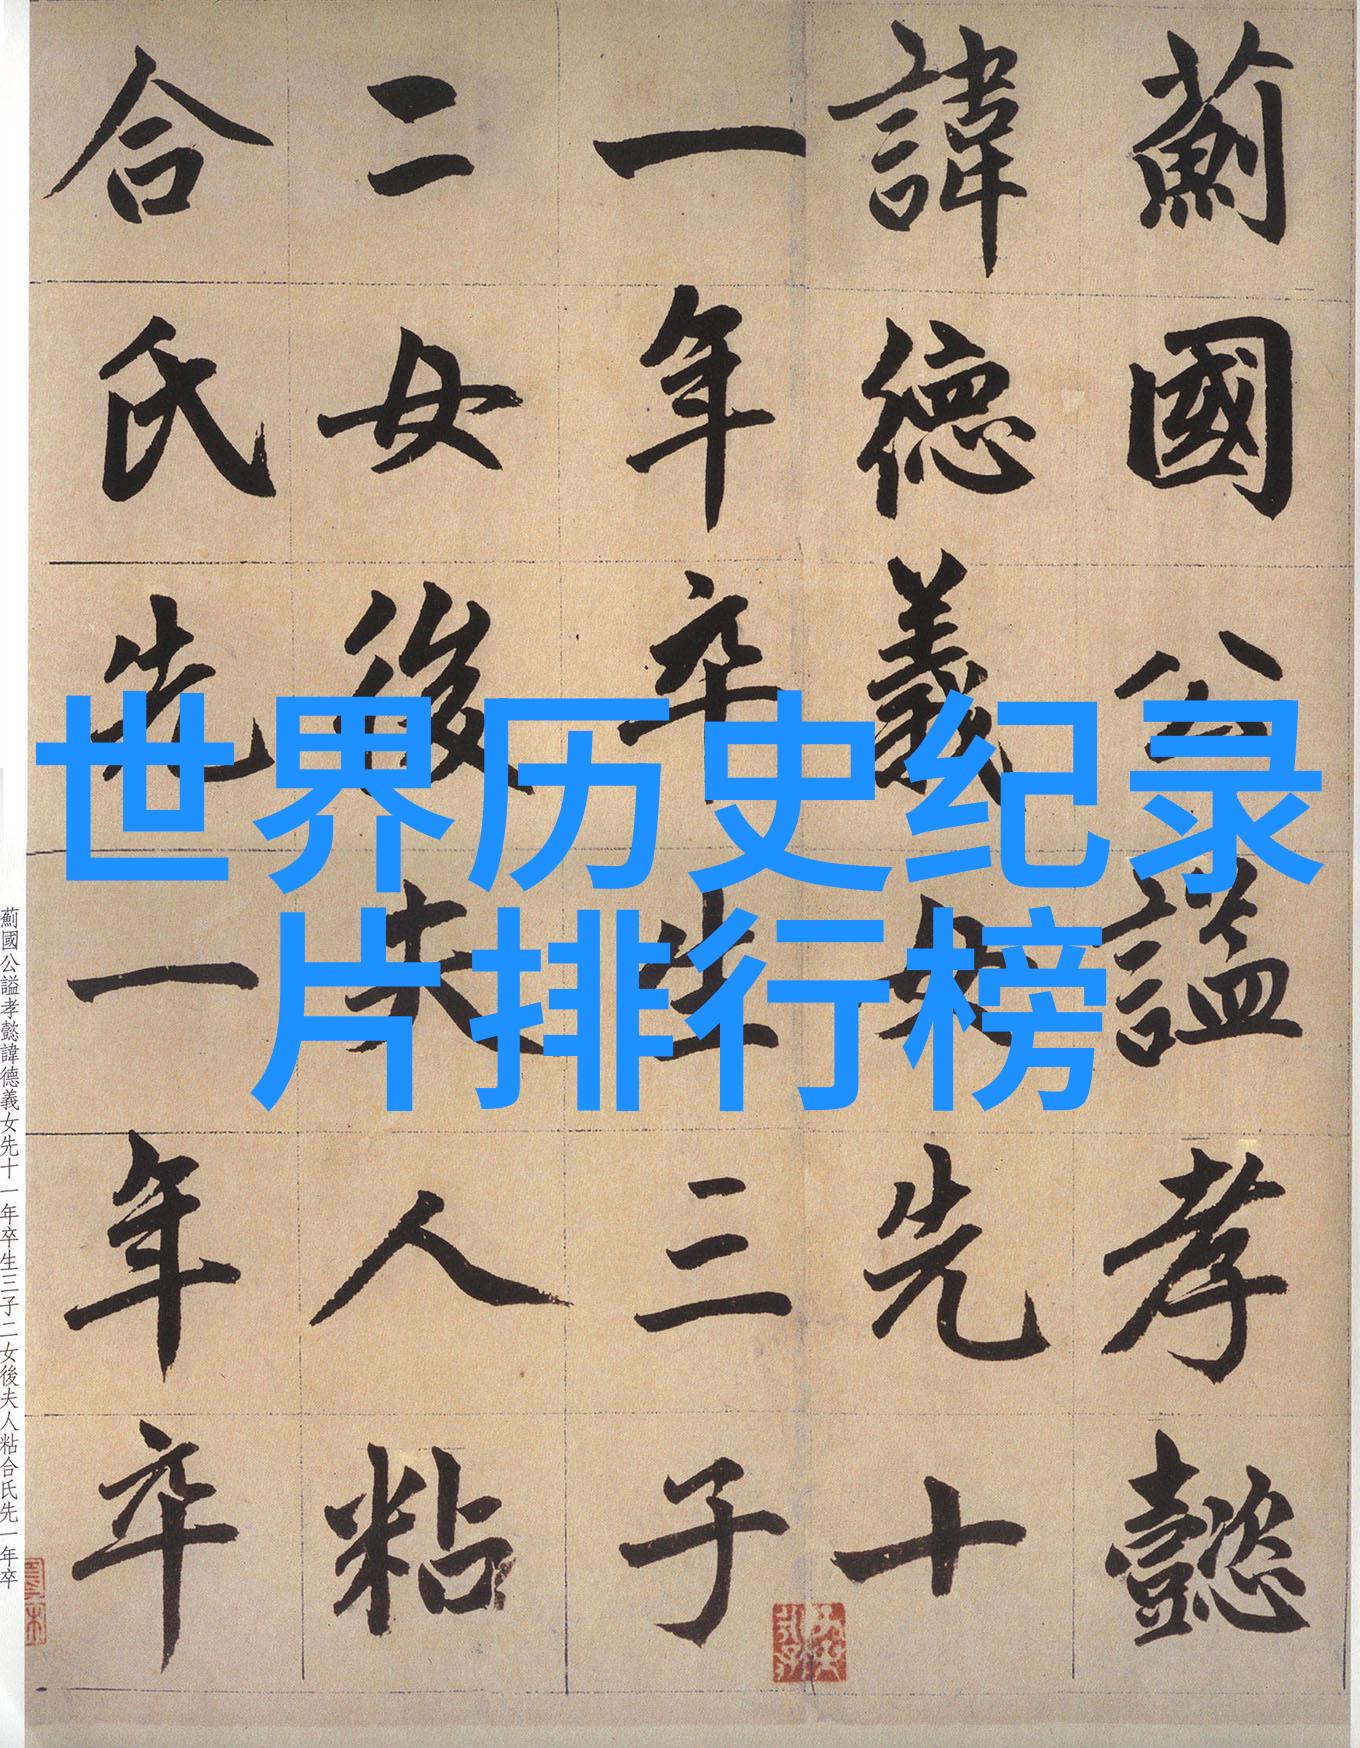 世界历史纪录
片排行榜
薊國公謚孝懿
諱德義女先十
一年卒生三子
二女後夫人粘
合氏先一年卒
薊國公謚孝懿諱德義女先十一年卒生三子二女後夫人粘合氏先一年卒